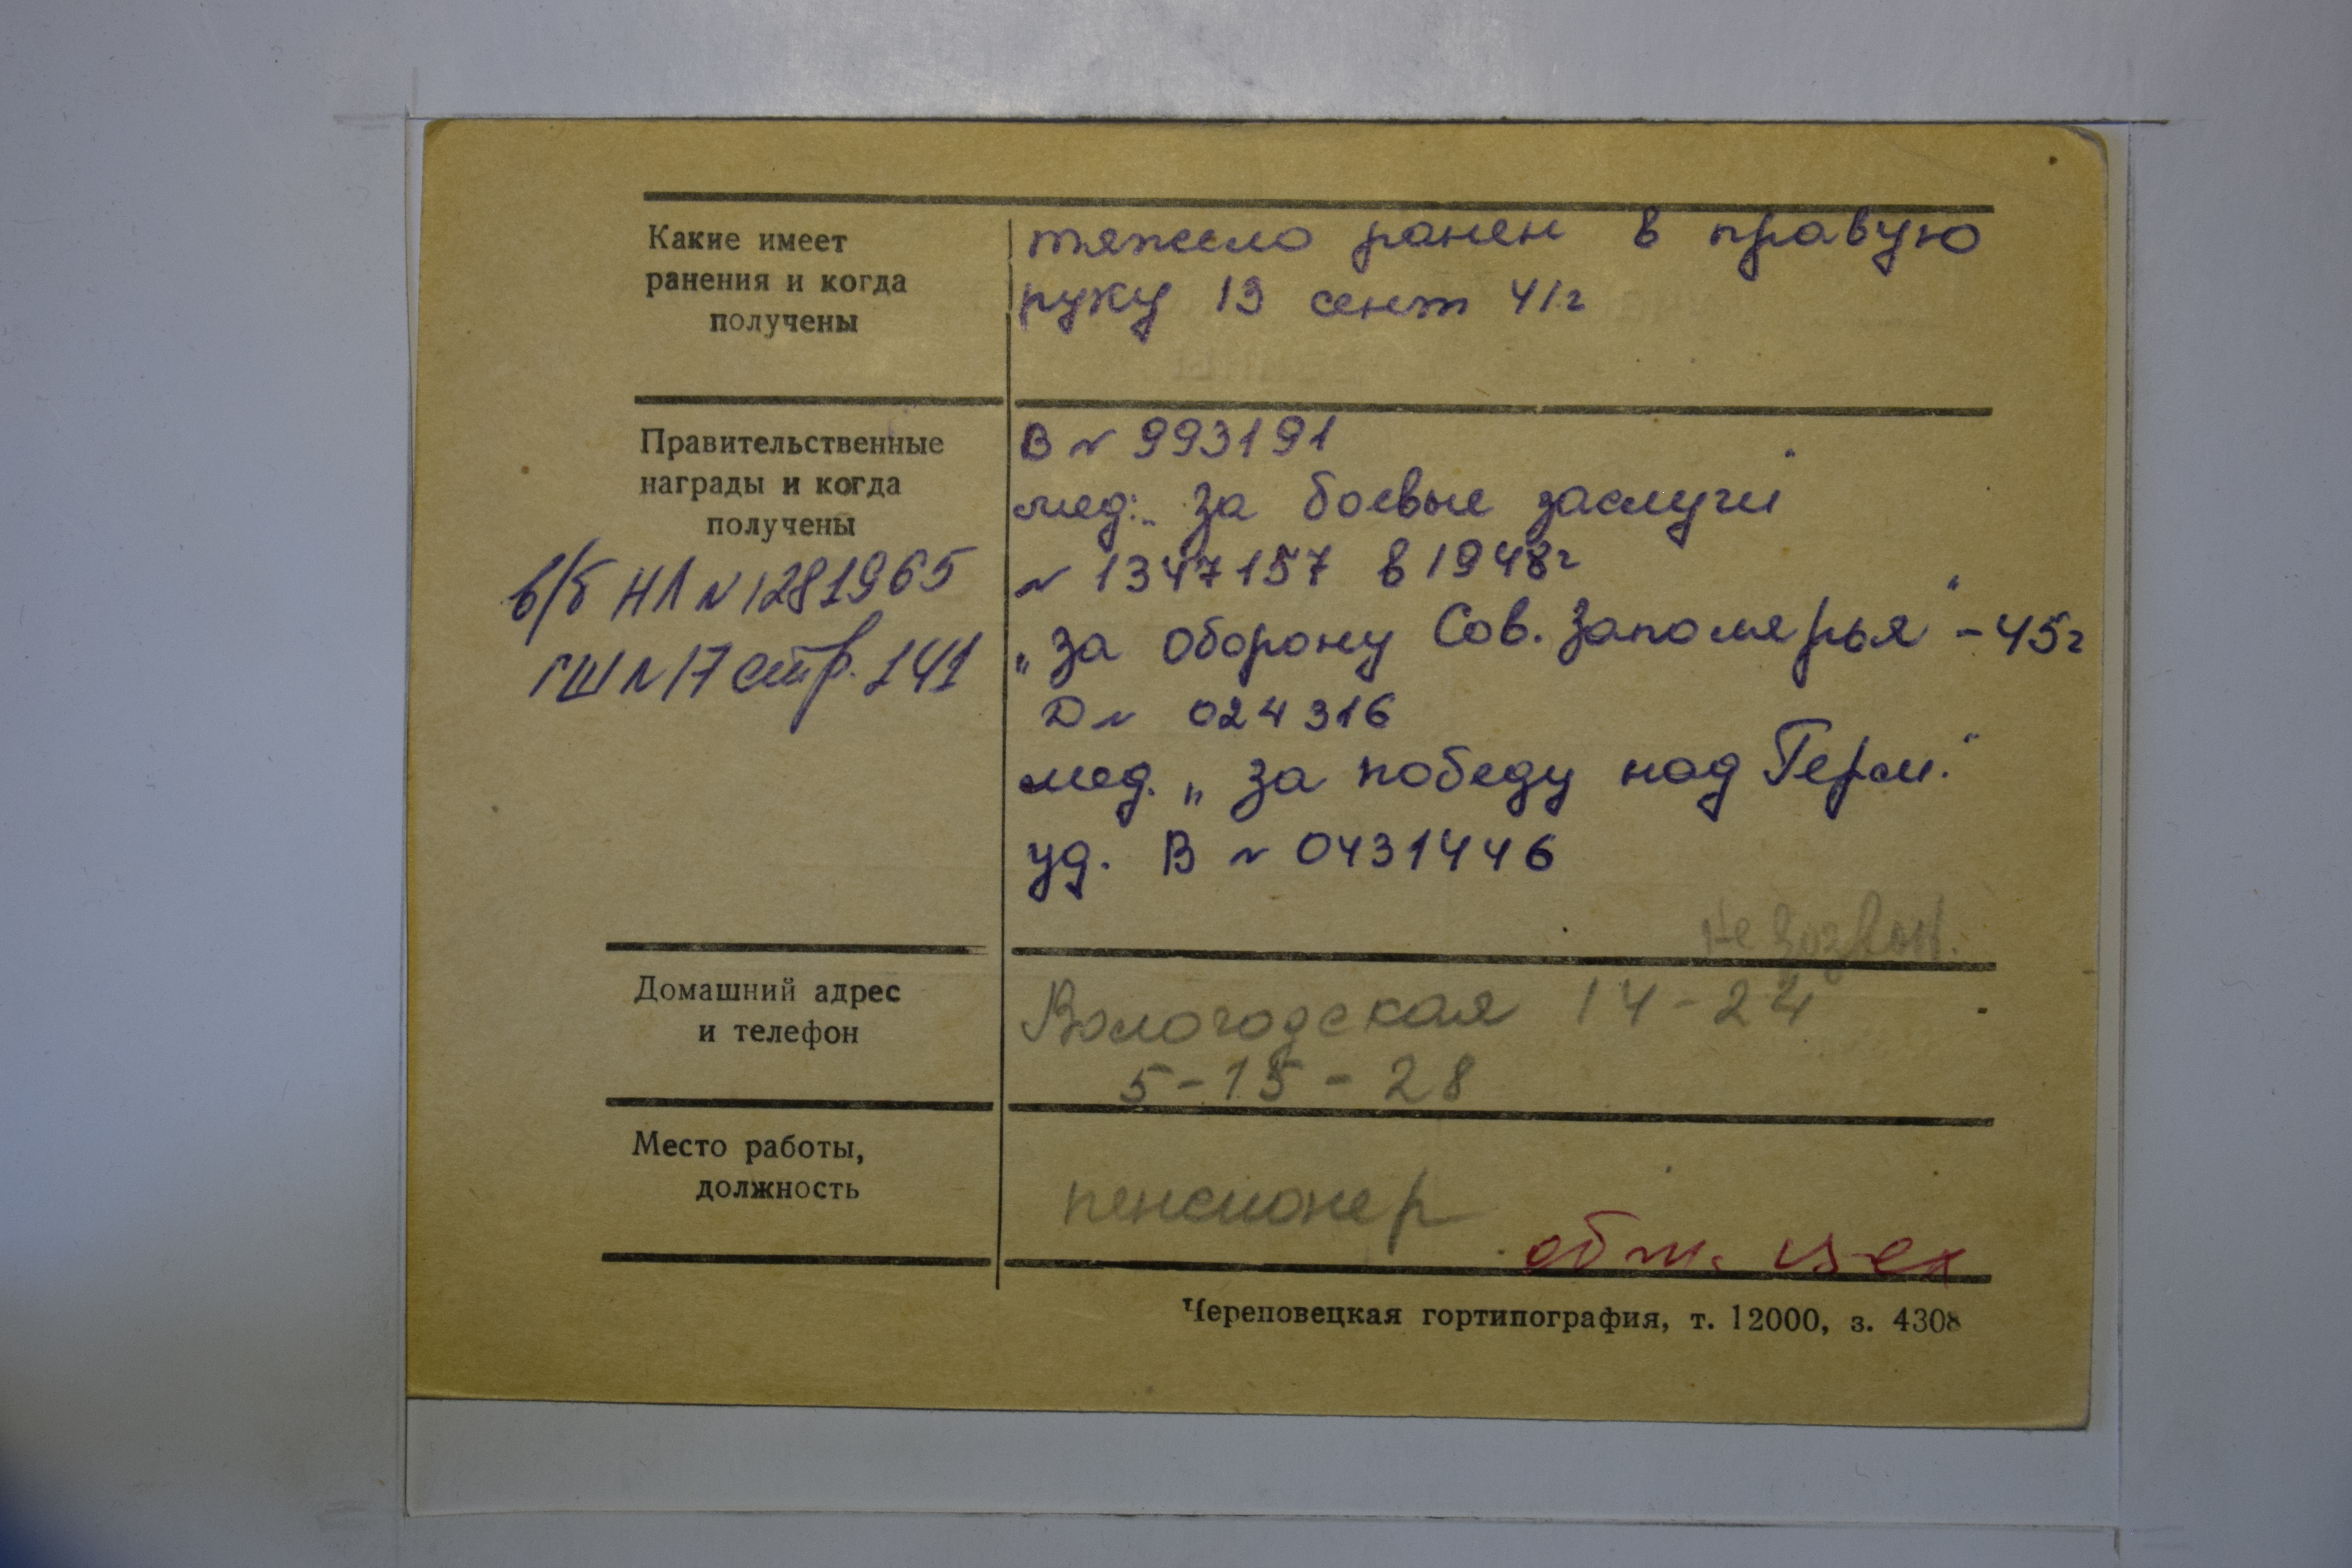 Какие имеет
ранения и когда
получены
тяжело ранен в правую
руку 13 сент 41г
Правительственные
награды и когда
получены
в/б НЛ № 1281965
ГШ № 17 стр. 141
В № 993191
мед: „За боевые заслуги"
№ 1347157 в 1948г
„За оборону Сов. Заполярья" - 45г
Д № 024316
мед. „За победу над Герм."
уд. В № 0431446
Не
Домашний адрес
и телефон
Вологодская 14-24
5-15-28
Место работы,
должность
пенсионер
обж. цех
Череповецкая гортипография, т. 12000, з. 4308